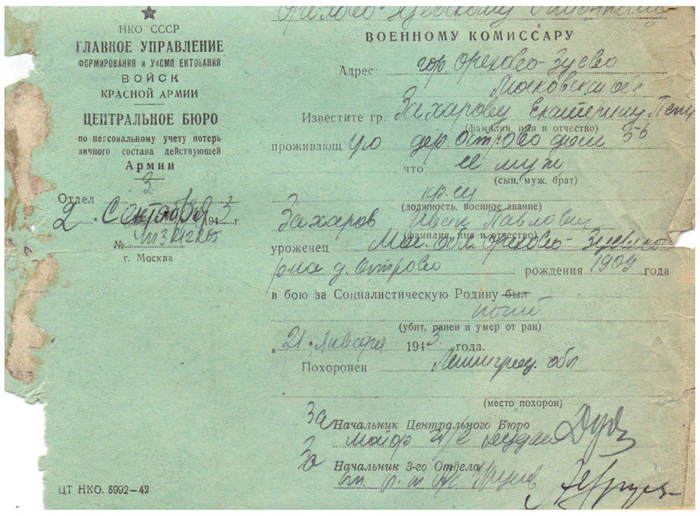 НКО СССР
ГЛАВНОЕ УПРАВЛЕНИЕ
ФОРМИРОВАНИЯ и УКОМПЛЕКТОВАНИЯ
ВОЙСК
КРАСНОЙ АРМИИ
ЦЕНТРАЛЬНОЕ БЮРО
по персональному учету потерь
личного состава действующей
Армии
Отдел 3
2 Сентября 1943 г
№
г. Москва
ЦТ НКО. 5992—42
ВОЕННОМУ КОМИССАРУ
Адрес гор Орехово-Зуево
Московской обл
Известите гр. Захарову Екатерину
(фамилия, имя и отчество)
проживающ ую дер. Острово дом 56
что её муж
(сын, муж, брат)
кр-ец
(должность, военное звание)
Захаров Иван Павлович
(фамилия, имя и отчество)
уроженец Мос. обл Орехово-Зуевского
р-на д. Острово рождения 1909 года
в бою за Социалистическую Родину был
погиб
(убит, ранен и умер от ран)
„21 января 1943 года.
Похоронен Ленинград. обл
(место похорон)
За Начальник Центрального Бюро
майор
За Начальник 3-го Отдела